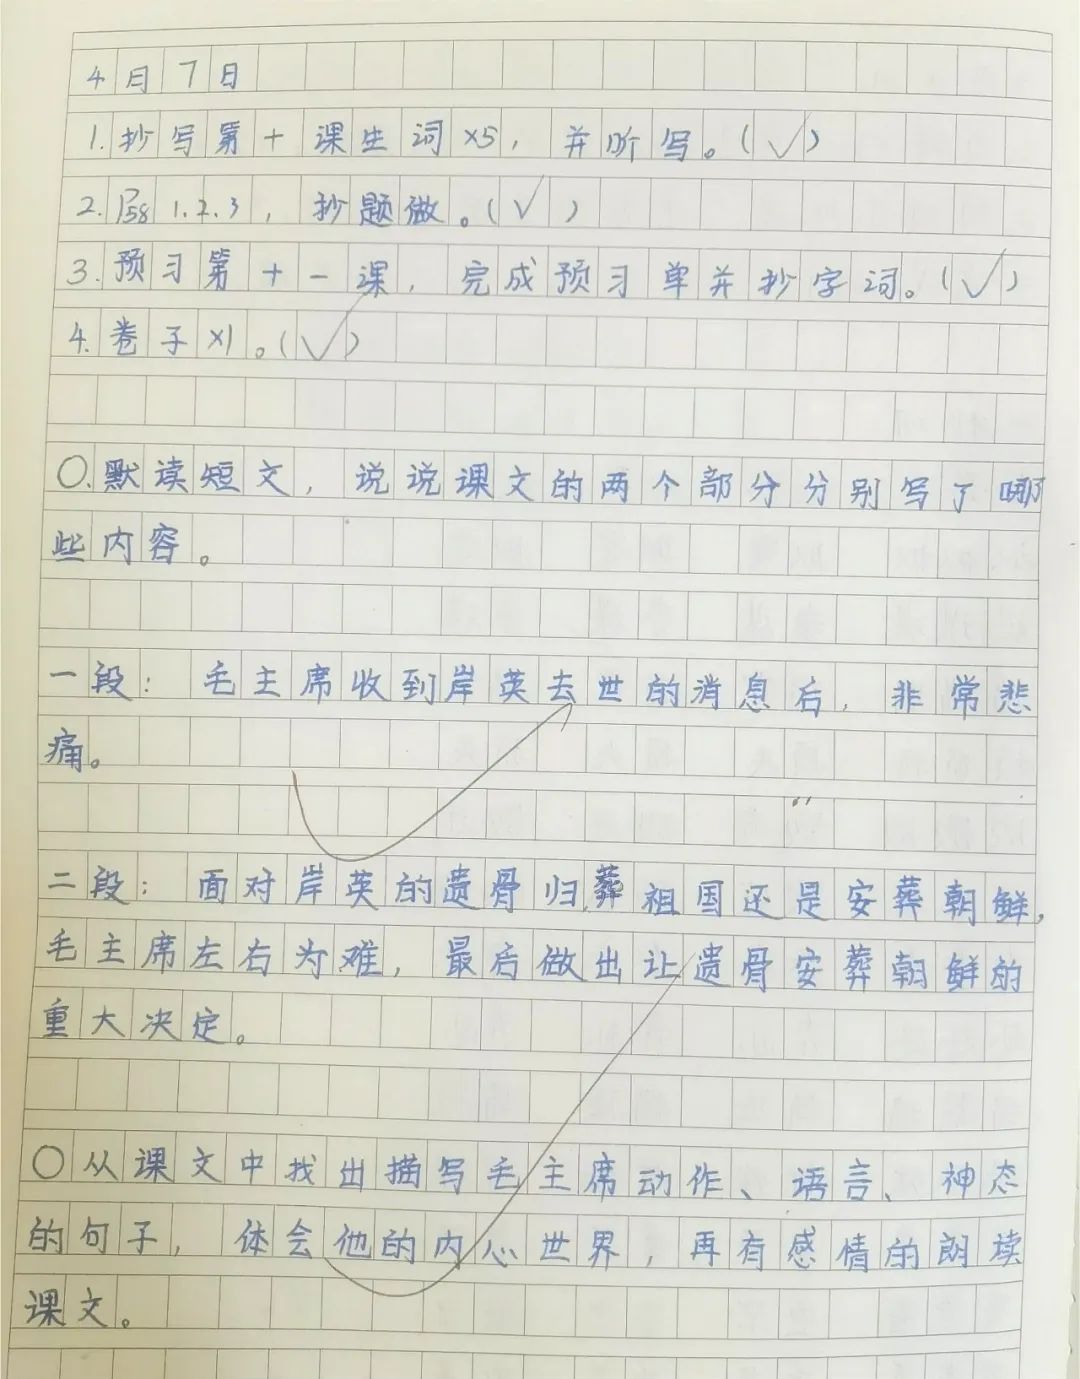 4月7日
1.抄写第十课生词×5，并听写。(√)
2.P58 1.2.3，抄题做。(√)
3.预习第十一课，完成预习单并抄字词。(√)
4.卷子×1。(√)
○.默读短文，说说课文的两个部分分别写了哪
些内容。
一段：毛主席收到岸英去世的消息后，非常悲
痛。
二段：面对岸英的遗骨归葬祖国还是安葬朝鲜，
毛主席左右为难，最后做出让遗骨安葬朝鲜的
重大决定。
○从课文中找出描写毛主席动作、语言、神态
的句子，体会他的内心世界，再有感情的朗读
课文。